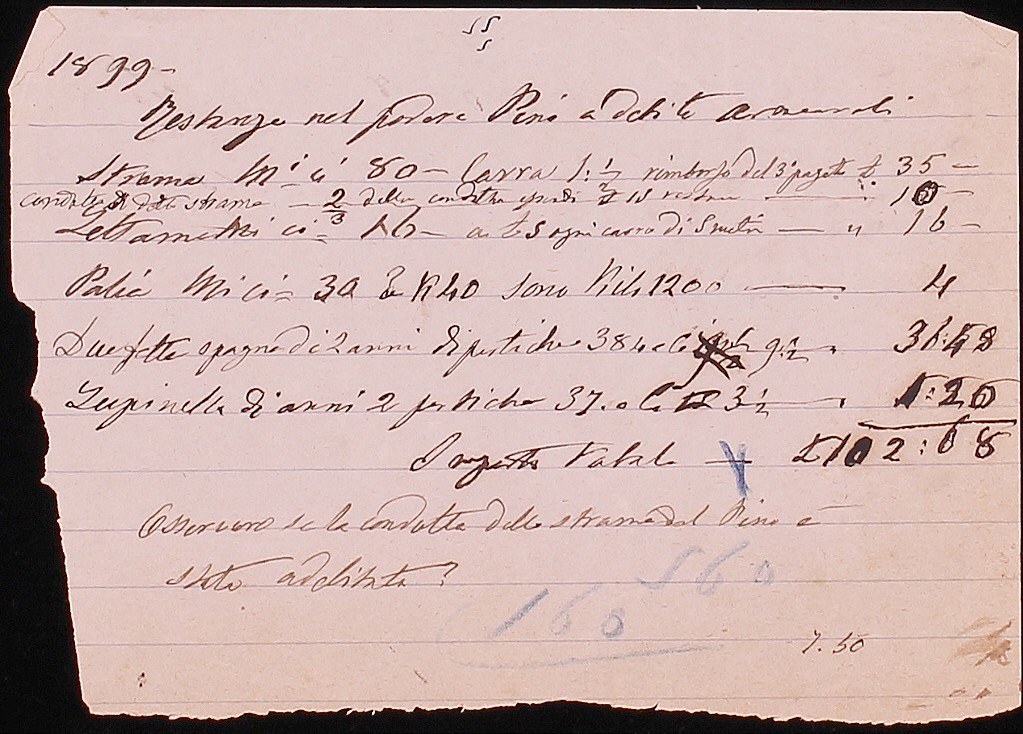 1899-
Restanze nel podere Pino a debito
Strame M.i c.i 80 - Carra 1:½ rimborso del 3° pagato £ 35 -
condotta di detto strame - 2/3 della condotta £ 15 - 10 -
Lettame M.i c.i = 16 - a £ 5 ogni carro di 5 metri - " 16 -
Palia M.i c.i = 30 K 40 sono Kili 1200 - 4
Due fette spagna di 2 anni di pertiche 384 a C. 9:½ " 36:48
Lupinella di anni 2 pertiche 37. a C. 3½ " 1:20
Totale £ 102:68
Osservare se la condotta dello strame del Pino è
stata addebitata?
560
160
7.50